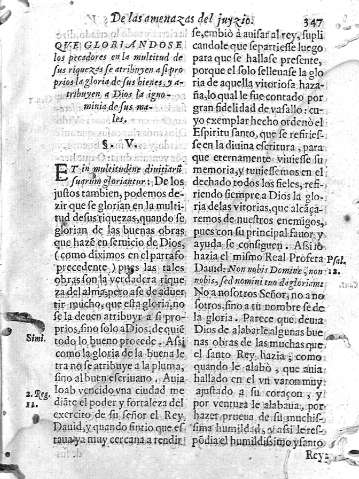 De las amenazas del juyzio. 347
QVE GLORIANDOSE
los pecadores en la multitud de
sus riquezas se atribuyen a si pro
prios la gloria de sus bienes, y a-
tribuyen a Dios la igno-
minia de sus ma-
les.
§. V.
ET in multitudine divitiarũ
suarum gloriantur: De los
justos tambien, podemos de-
zir que se glorian en la multi-
tud de sus riquezas, quando se
glorian de las buenas obras
que hazẽ en servicio de Dios,
(como diximos en el parrafo
precedente) pues las tales
obras son la verdadera rique
za del alma, pero ase de adver
tir mucho, que esta gloria, no
se la deuen atribuyr a si pro-
prios, sino solo a Dios, de quiẽ
todo lo bueno procede. Assi
Simi.
como la gloria de la buena le
tra no se atribuye a la pluma,
sino al buen escriuano. Auia
2. Reg.
12.
Ioab vencido vna ciudad me
diãte el poder y fortaleza del
exercito de su señor el Rey
Dauid, y quando sintio que es
taua ya muy cercana a rendir
se, embiò à auisar al rey, supli
candole que se partiesse luego
para que se hallase presente,
porque el solo se lleuase la glo
ria de aquella vitoriosa haza-
ña, lo qual le fue contado por
gran fidelidad de vasallo: cu-
yo exemplar hecho ordenò el
Espiritu santo, que se refiries-
se en la diuina escritura, para
que eternamente viuiese su
memoria, y tuuiessemos en el
dechado todos los fieles, refi-
riendo siempre a Dios la glo-
ria de las vitorias, que alcãça-
remos de nuestros enemigos,
pues con su principal fauor y
ayuda se consiguen. Assi lo
hazia el mismo Real Profeta
Psal.
12.
Dauid: Non nobis Domine, non
nobis, sed nomini tuo da gloriam:
No a nosotros Señor, no a no
sotros, sino a tu nombre se de
la gloria. Parece que deuia
Dios de alabarle algunas bue
nas obras de las muchas que
el santo Rey hazia; como
quando le alabò, que auia
hallado en el vn varon muy
ajustado a su coraçon, y
por ventura alabaua, por
hazer prueua de su muchis-
sima humildad, y assi le res-
põdia el humildissimo y santo
Rey: